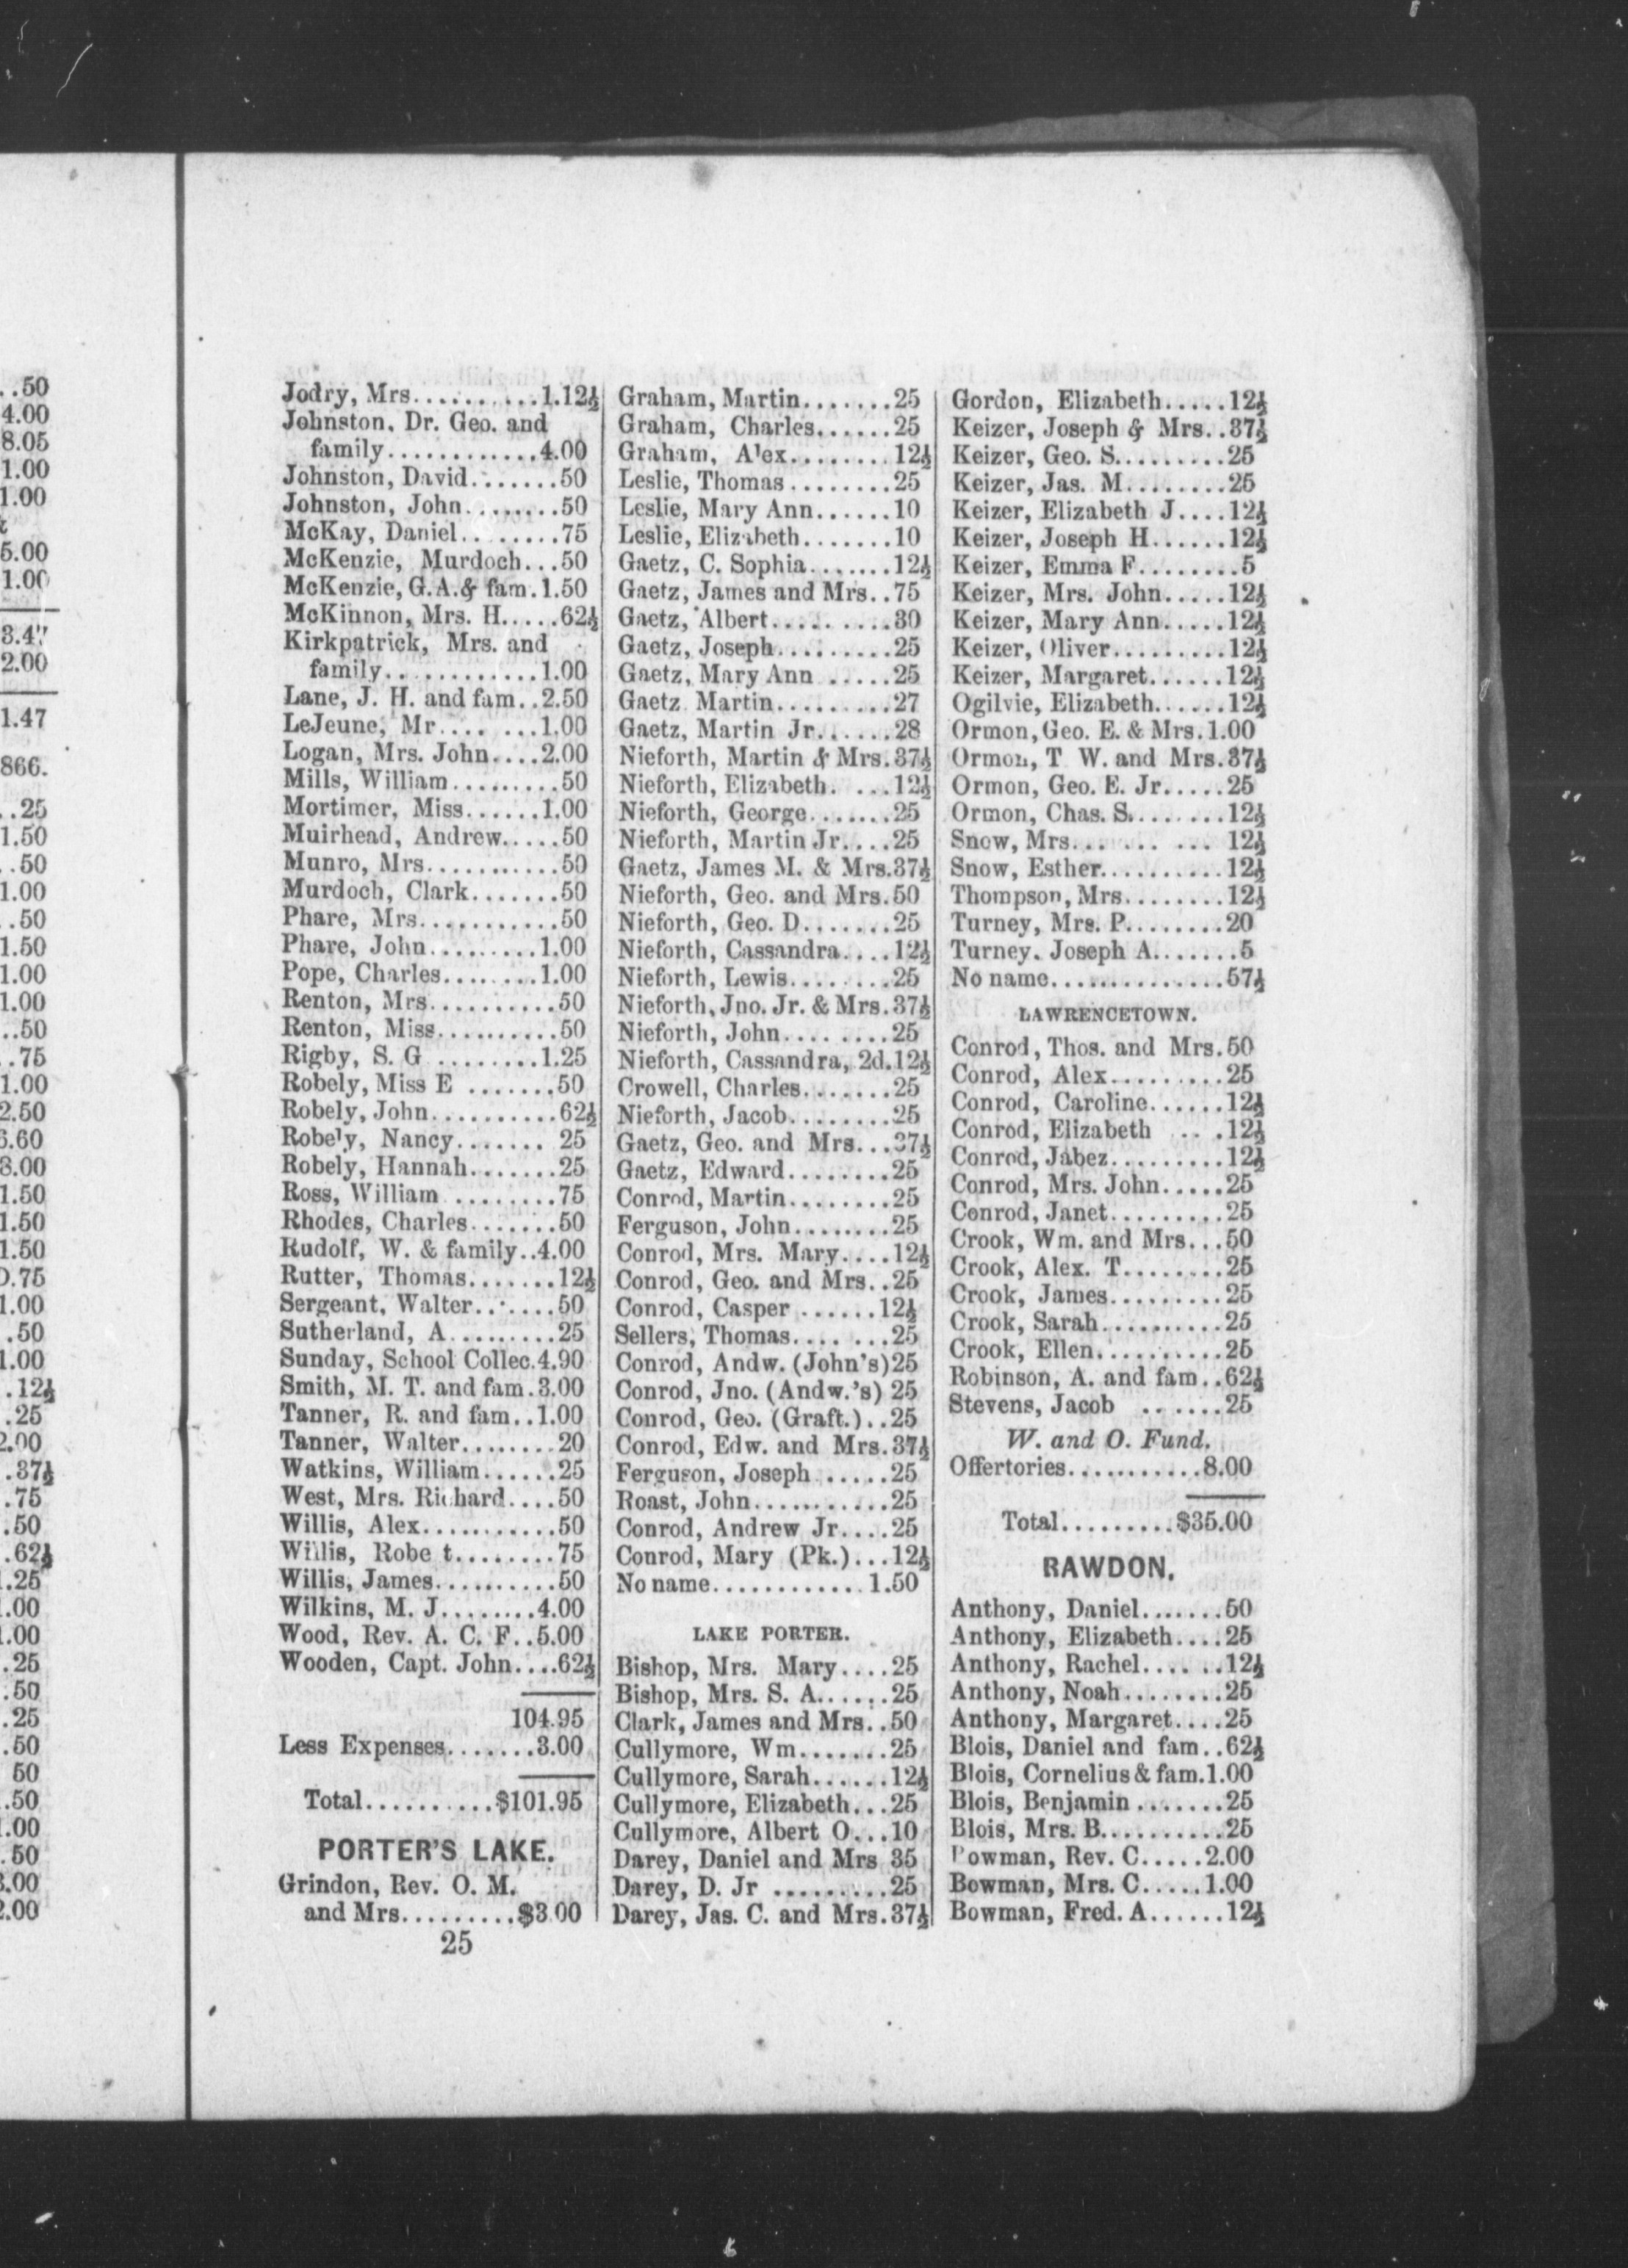 ..50
4.00
8.05
1.00
1.00
5.00
1.00
3.47
2.00
1.47
866.
..25
1.50
..50
1.00
..50
1.50
1.00
1.00
..50
..75
1.00
2.50
6.60
8.00
1.50
1.50
1.50
0.75
1.00
.50
1.00
.12½
.25
2.00
.37½
.75
.50
.62½
.25
.00
.00
.25
.50
.25
.50
50
.50
.00
.50
3.00
2.00
Jodry, Mrs..........1.12½
Johnston, Dr. Geo. and
family............4.00
Johnston, David.......50
Johnston, John........50
McKay, Daniel........75
McKenzie, Murdoch...50
McKenzie, G.A.& fam.1.50
McKinnon, Mrs. H.....62½
Kirkpatrick, Mrs. and
family............1.00
Lane, J. H. and fam..2.50
LeJeune, Mr.... ...1.00
Logan, Mrs. John....2.00
Mills, William.........50
Mortimer, Miss......1.00
Muirhead, Andrew.....50
Munro, Mrs...........50
Murdoch, Clark.......50
Phare, Mrs...........50
Phare, John.........1.00
Pope, Charles........1.00
Renton, Mrs..........50
Renton, Miss..........50
Rigby, S. G ........1.25
Robely, Miss E .......50
Robely, John..........62½
Robely, Nancy....... 25
Robely, Hannah.......25
Ross, William.........75
Rhodes, Charles.......50
Rudolf, W. & family..4.00
Rutter, Thomas.......12½
Sergeant, Walter.......50
Sutherland, A.........25
Sunday, School Collec.4.90
Smith, M. T. and fam.3.00
Tanner, R. and fam..1.00
Tanner, Walter........20
Watkins, William......25
West, Mrs. Richard....50
Willis, Alex...........50
Willis, Robe t........75
Willis, James..........50
Wilkins, M. J........4.00
Wood, Rev. A. C. F..5.00
Wooden, Capt. John....62½
104.95
Less Expenses.......3.00
Total..........$101.95
PORTER'S LAKE.
Grindon, Rev. O. M.
and Mrs.........$3 00
25
Graham, Martin.......25
Graham, Charles......25
Graham, Alex........12½
Leslie, Thomas........25
Leslie, Mary Ann......10
Leslie, Elizabeth.......10
Gaetz, C. Sophia.......12½
Gaetz, James and Mrs..75
Gaetz, Albert..........30
Gaetz, Joseph.........25
Gaetz, Mary Ann .....25
Gaetz Martin.........27
Gaetz, Martin Jr......28
Nieforth, Martin & Mrs.37½
Nieforth, Elizabeth. ...12½
Nieforth, George.......25
Nieforth, Martin Jr....25
Gaetz, James M. & Mrs.37½
Nieforth, Geo. and Mrs.50
Nieforth, Geo. D.......25
Nieforth, Cassandra....12½
Nieforth, Lewis........25
Nieforth, Jno. Jr. & Mrs.37½
Nieforth, John........25
Nieforth, Cassandra, 2d.12½
Crowell, Charles.......25
Nieforth, Jacob........25
Gaetz, Geo. and Mrs...37½
Gaetz, Edward........25
Conrod, Martin........25
Ferguson, John........25
Conrod, Mrs. Mary....12½
Conrod, Geo. and Mrs..25
Conrod, Casper ......12½
Sellers, Thomas.... ...25
Conrod, Andw. (John's)25
Conrod, Jno. (Andw.'s) 25
Conrod, Geo. (Graft.)..25
Conrod, Edw. and Mrs.37½
Ferguson, Joseph .....25
Roast, John...........25
Conrod, Andrew Jr....25
Conrod, Mary (Pk.)...12½
No name............1.50
LAKE PORTER.
Bishop, Mrs. Mary....25
Bishop, Mrs. S. A......25
Clark, James and Mrs..50
Cullymore, Wm.......25
Cullymore, Sarah......12½
Cullymore, Elizabeth...25
Cullymore, Albert O...10
Darey, Daniel and Mrs 35
Darey, D. Jr .........25
Darey, Jas. C. and Mrs.37½
Gordon, Elizabeth.....12½
Keizer, Joseph & Mrs..37½
Keizer, Geo. S.........25
Keizer, Jas. M........25
Keizer, Elizabeth J....12½
Keizer, Joseph H......12½
Keizer, Emma F........5
Keizer, Mrs. John.....12½
Keizer, Mary Ann.....12½
Keizer, Oliver.........12½
Keizer, Margaret......12½
Ogilvie, Elizabeth......12½
Ormon, Geo. E. & Mrs.1.00
Ormon, T W. and Mrs.37½
Ormon, Geo. E. Jr.....25
Ormon, Chas. S........12½
Snow, Mrs... ... ... 12½
Snow, Esther..........12½
Thompson, Mrs........12½
Turney, Mrs. P........20
Turney. Joseph A.......5
No name..............57½
LAWRENCETOWN.
Conrod, Thos. and Mrs.50
Conrod, Alex.........25
Conrod, Caroline......12½
Conrod, Elizabeth .. .12½
Conrod, Jabez.........12½
Conrod, Mrs. John.....25
Conrod, Janet.........25
Crook, Wm. and Mrs...50
Crook, Alex. T........25
Crook, James.........25
Crook, Sarah..........25
Crook, Ellen..........25
Robinson, A. and fam..62½
Stevens, Jacob ......25
W. and O. Fund.
Offertories...........8.00
Total.........$35.00
RAWDON.
Anthony, Daniel.......50
Anthony, Elizabeth....25
Anthony, Rachel.... ..12½
Anthony, Noah........25
Anthony, Margaret....25
Blois, Daniel and fam..62½
Blois, Cornelius & fam.1.00
Blois, Benjamin.......25
Blois, Mrs. B..........25
Bowman, Rev. C.....2.00
Bowman, Mrs. C.....1.00
Bowman, Fred. A......12½